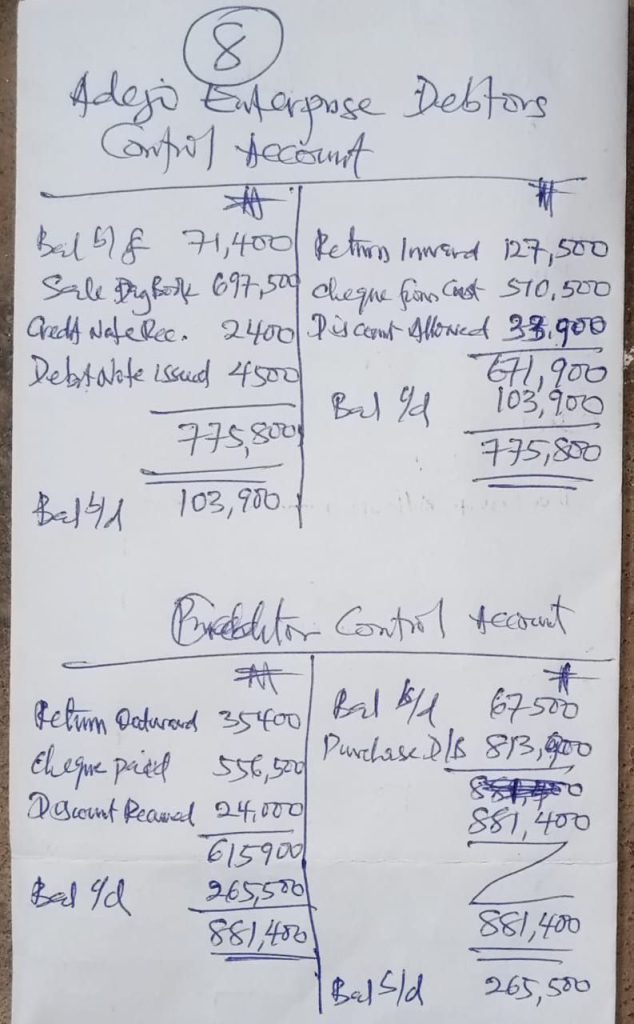 8
Adejo Enterprise Debtors
Control Account
₦ ₦
Bal b/f 71,400 Return Inward 127,500
Sale Day Book 697,500 cheque from Cust 510,500
Credit Note Rec. 2400 Discount Allowed 33,900
Debit Note issued 4500 671,900
Bal c/d 103,900
775,800 775,800
Bal b/d 103,900
Creditor Control Account
₦ ₦
Return Outward 35400 Bal b/d 67500
Cheque paid 556,500 Purchase D/B 813,900
Discount Received 24,000 881,400
615900
Bal c/d 265,500
881,400 881,400
Bal b/d 265,500